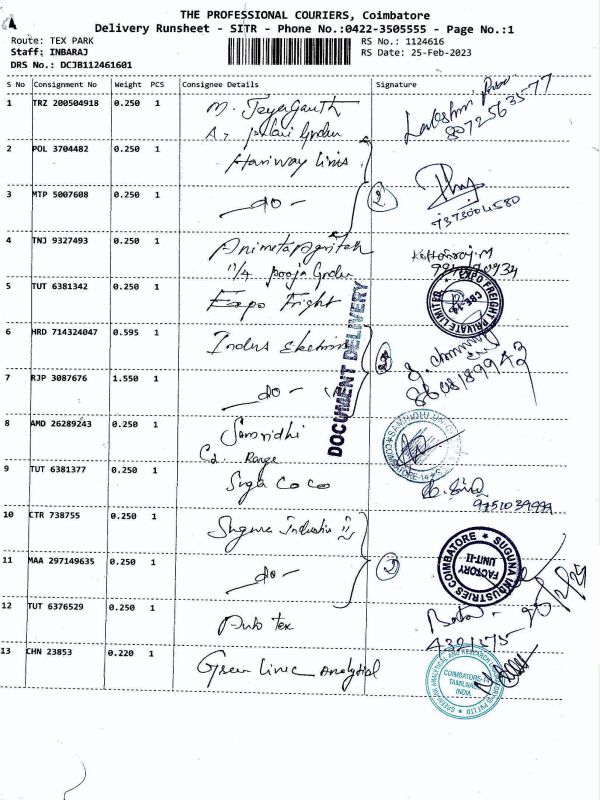 THE PROFESSIONAL COURIERS, Coimbatore
Delivery Runsheet - SITR - Phone No.:0422-3505555 - Page No.:1
Route: TEX PARK RS No.: 1124616
Staff: INBARAJ RS Date: 25-Feb-2023
DRS No.: DCJB112461601
S No Consignment No Weight PCS Consignee Details Signature
1 TRZ 200504918 0.250 1 M. Jeyaganth
8072563577
2 POL 3704482 0.250 1 Hariway Linis
3 MTP 5007608 0.250 1 do - 2
7373004580
4 TNJ 9327493 0.250 1
11/4 pooja Grden
5 TUT 6381342 0.250 1 Expo Fright
EXPO FREIGHT PRIVATE LIMITED
CBE-14
DOCUMENT DELIVERY
6 HRD 714324047 0.595 1 Indus
7 RJP 3087676 1.550 1 do -
8608189942
8 AMD 26289243 0.250 1 Samridhi
9 TUT 6381377 0.250 1 Suga Coco
10 CTR 738755 0.250 1 Suguna Industri II
11 MAA 297149635 0.250 1 do - 2
SUGUNA INDUSTRIES COIMBATORE
FACTORY
UNIT-II
12 TUT 6376529 0.250 1 Puto tex
13 CHN 23853 0.220 1 Green Linec Analytical
COIMBATORE-14
TAMILNADU
INDIA